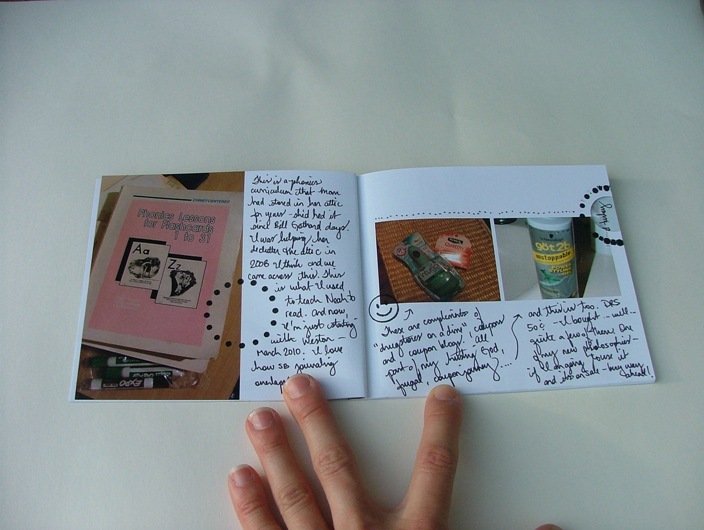 Phonics Lessons
for Flashcards
1 to 31
Aa
Zz
This is a phonics
curriculum that mom
had stored in her attic
for years - she'd had it
since Bill Gothard days.
I was helping her
declutter the attic in
2008 I think and we
came across this. This
is what I used
to teach Noah to
read. and now,
I'm just starting
with Weston -
March 2010. I love
how SB journaling
overlaps
These are compliments of
"drugstores on a dime", icoupon
and coupon blogs. All
part of my
frugal,
and this is too. DRS
50¢ - I bought - well -
quite a few of them. One
of my new philosophies -
if I'm going to use it
and it's on sale - buy way
ahead!
got2b
unstoppable